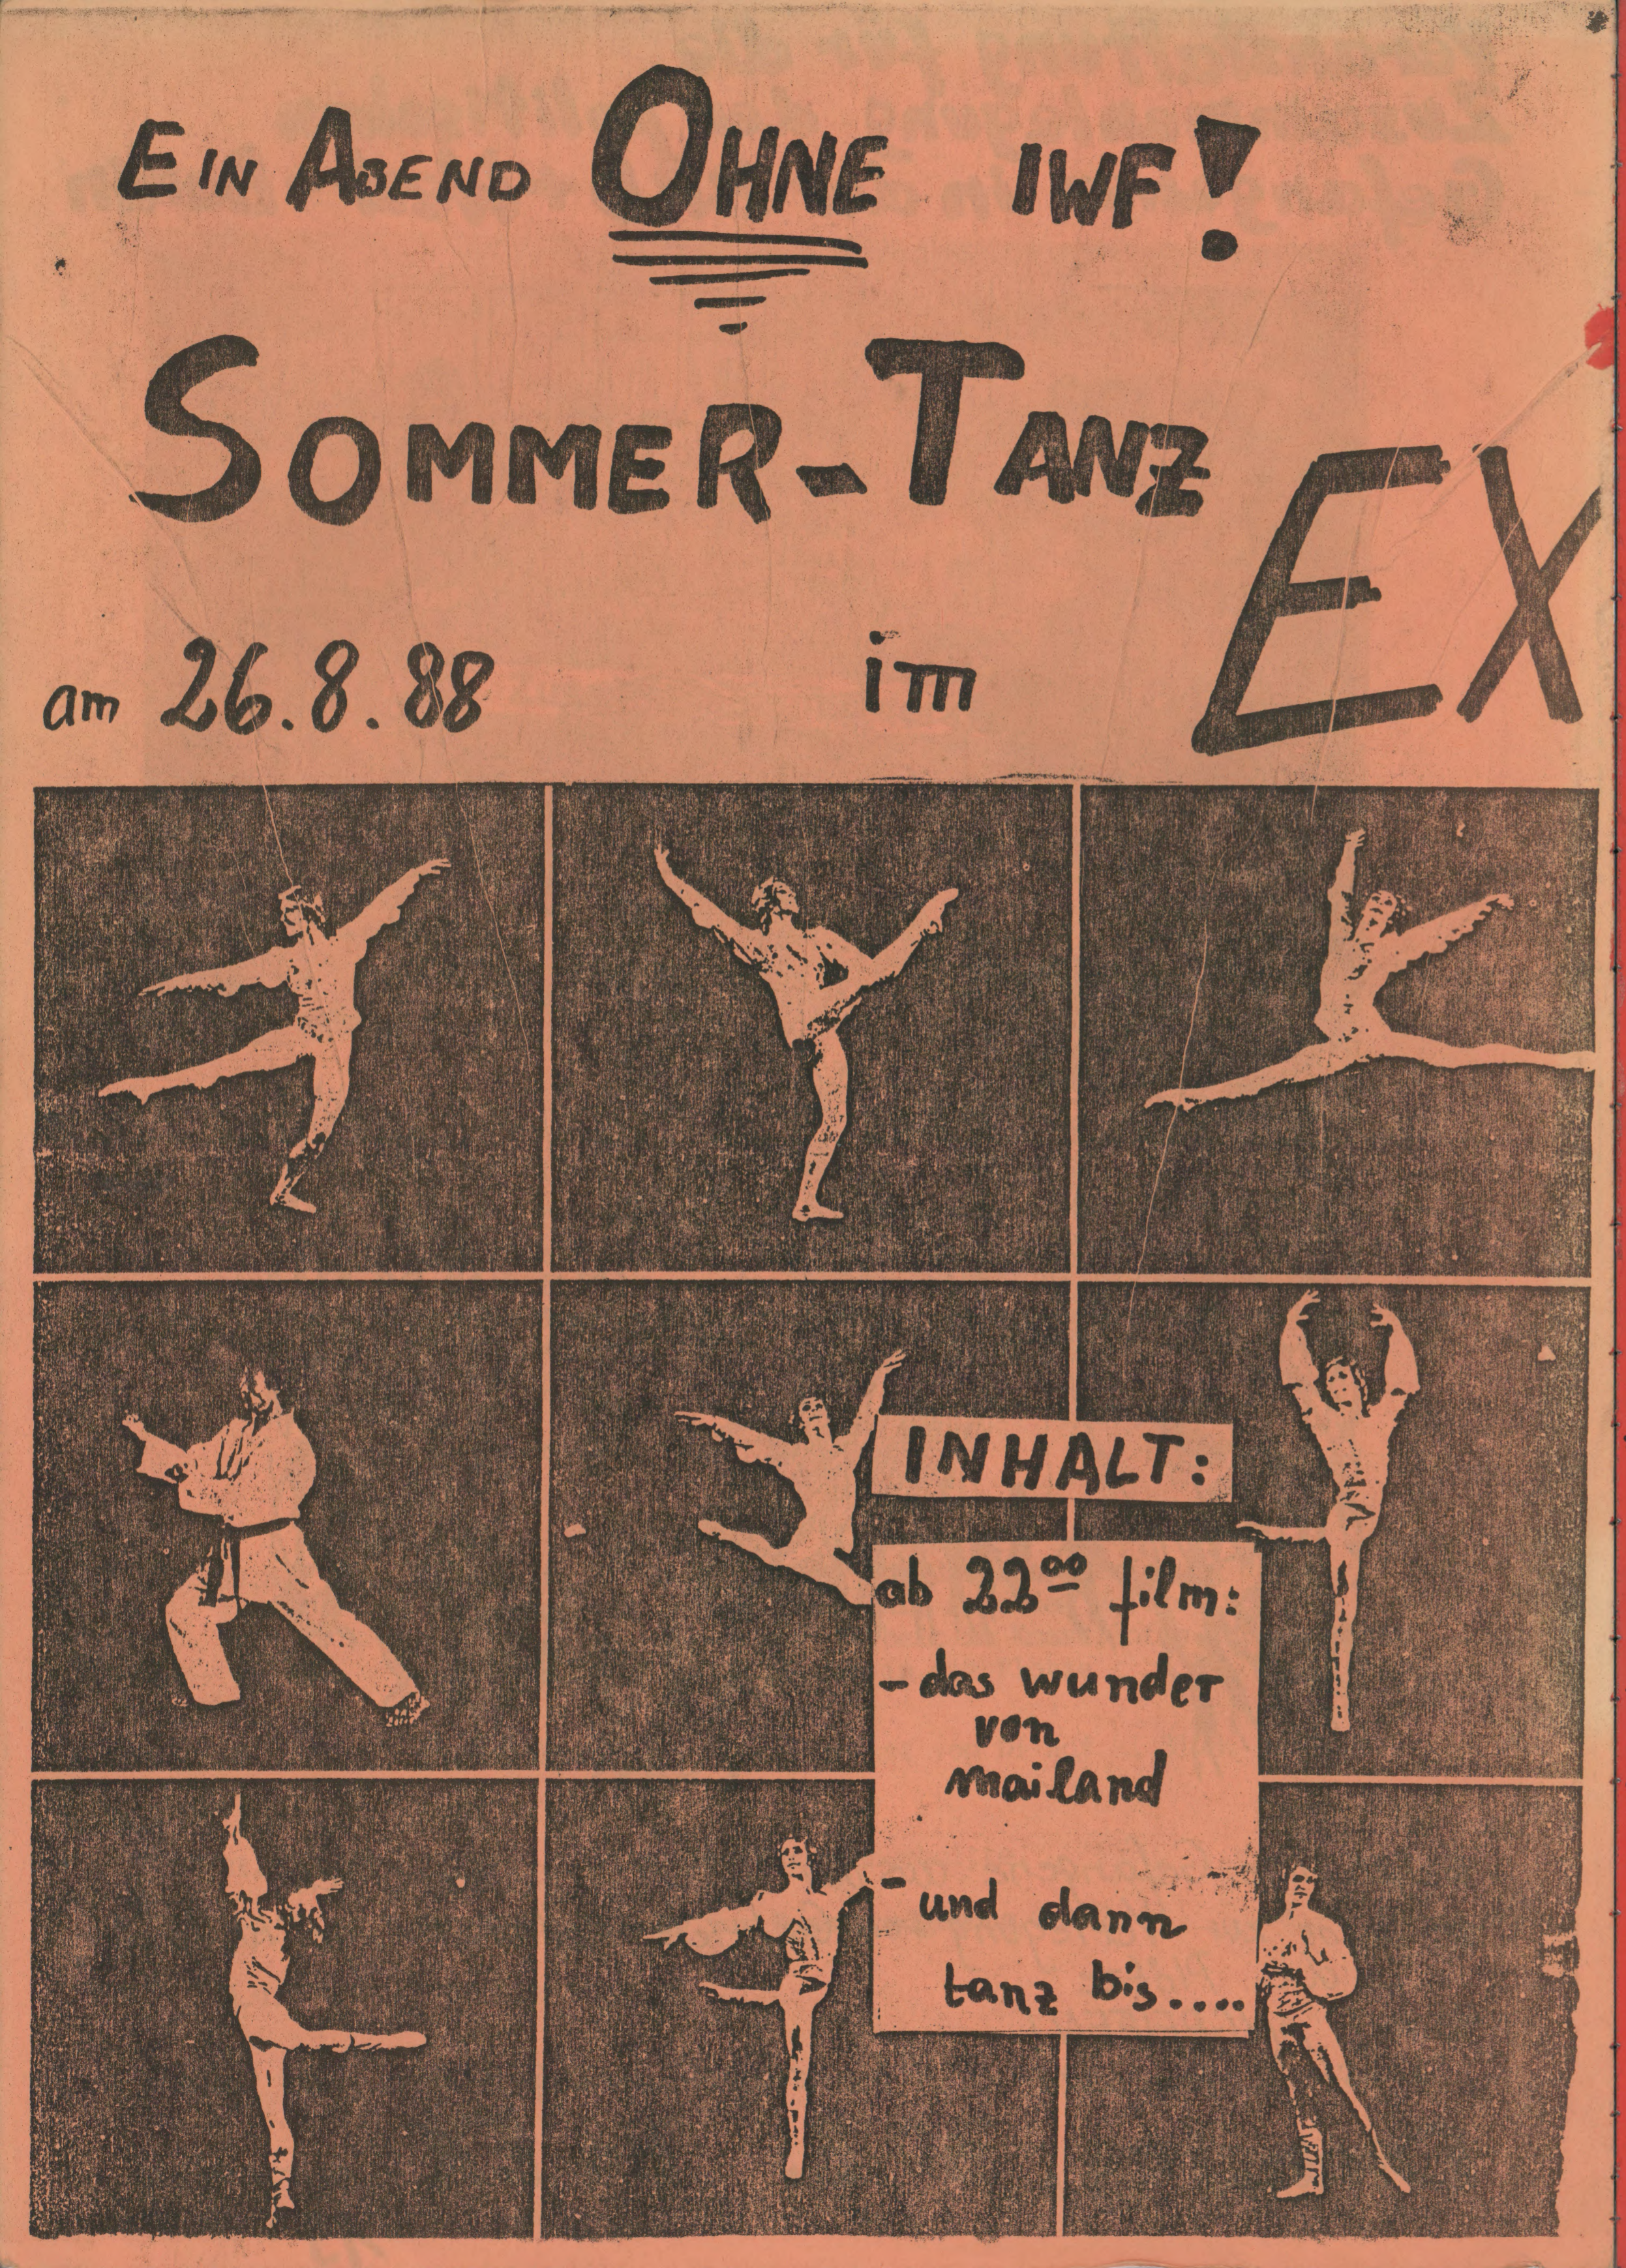 EIN ABEND OHNE IWF!
SOMMER-TANZ
am 26.8.88 im EX
INHALT:
ab 22⁰⁰ film:
- das wunder
von
mailand
- und dann
tanz bis....